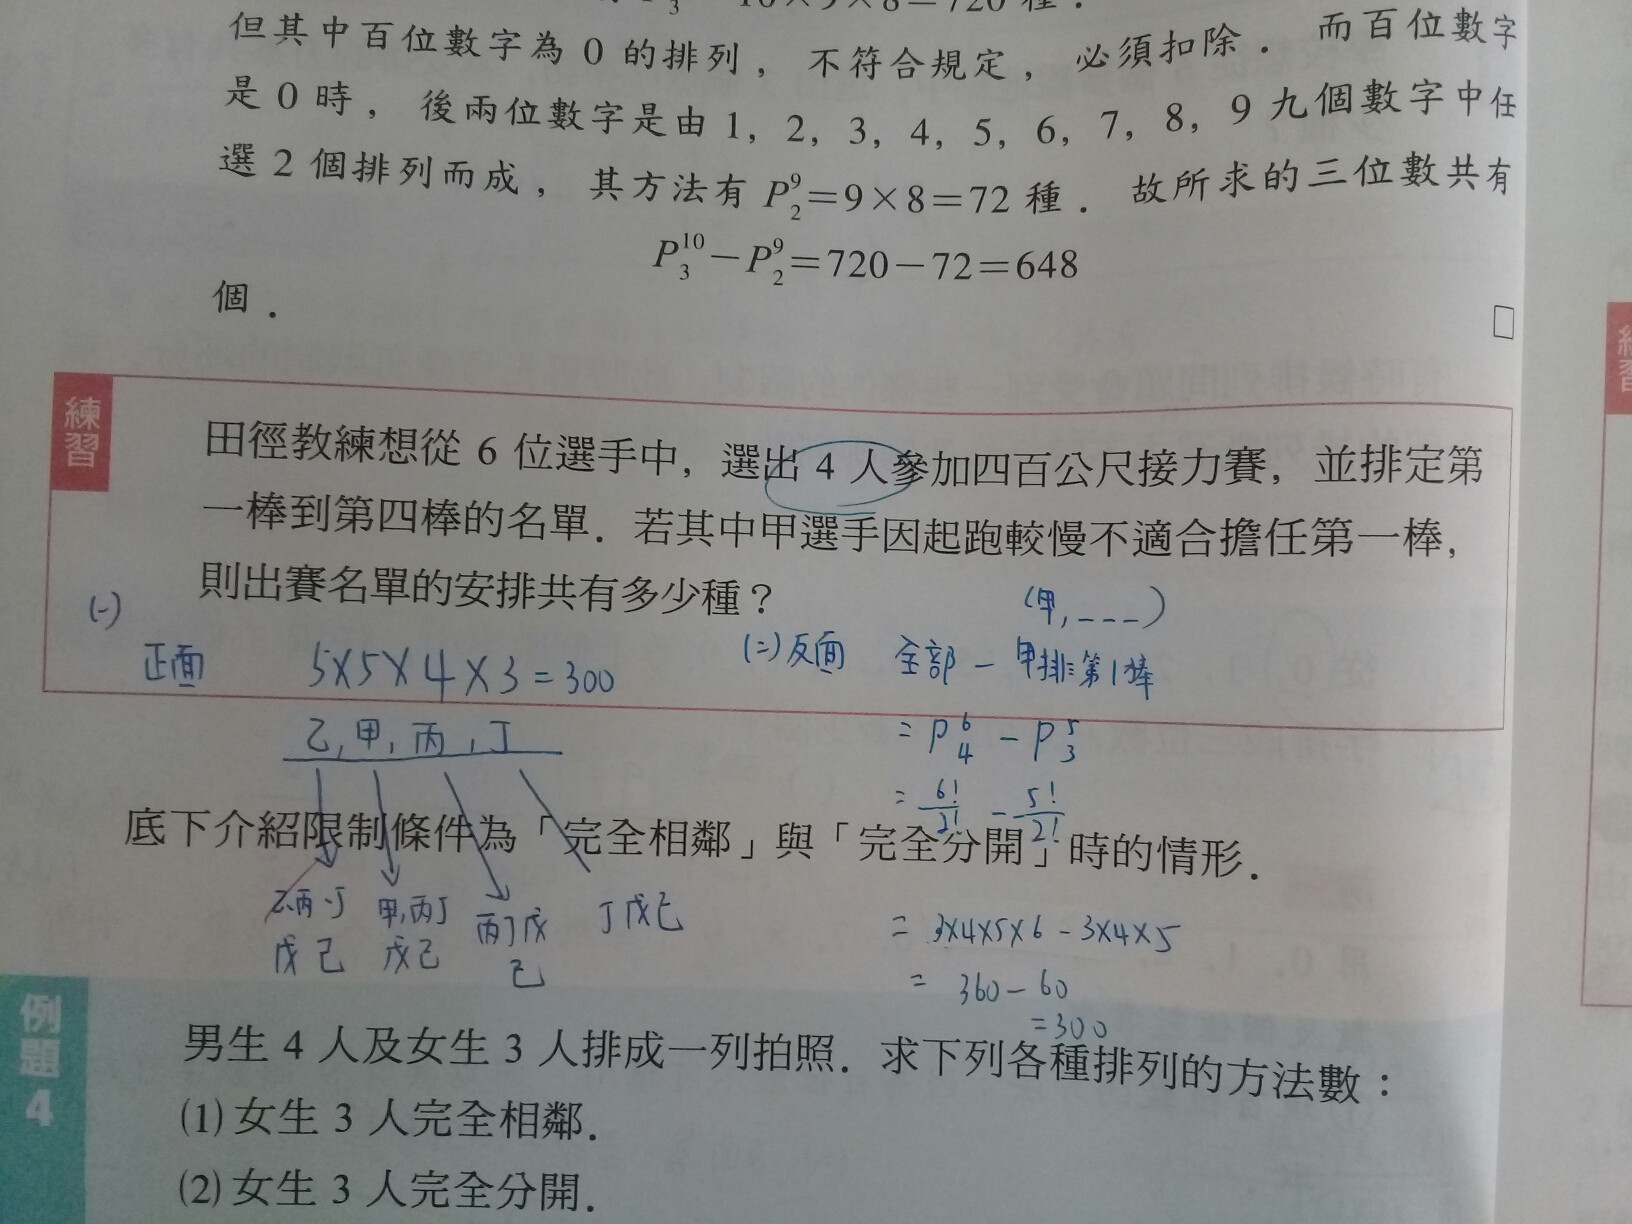 10×9×8=720 種．
但其中百位數字為 0 的排列，不符合規定，必須扣除．而百位數字
是 0 時，後兩位數字是由 1，2，3，4，5，6，7，8，9 九個數字中任
選 2 個排列而成，其方法有 P⁹₂=9×8=72 種．故所求的三位數共有
P¹⁰₃−P⁹₂=720−72=648
個．
練習
田徑教練想從 6 位選手中，選出 4 人參加四百公尺接力賽，並排定第
一棒到第四棒的名單．若其中甲選手因起跑較慢不適合擔任第一棒，
則出賽名單的安排共有多少種？
(甲, _ _ _)
(一)
正面 5×5×4×3=300
(二)反面 全部−甲排第1棒
乙,甲,丙,丁
=P⁶₄−P⁵₃
=6!/2!−5!/2!
底下介紹限制條件為「完全相鄰」與「完全分開」時的情形．
乙丙丁 甲,丙丁 丙丁戊 丁戊己
戊己 戊己 己
=3×4×5×6−3×4×5
=360−60
=300
例題 4
男生 4 人及女生 3 人排成一列拍照．求下列各種排列的方法數：
(1)女生 3 人完全相鄰．
(2)女生 3 人完全分開．